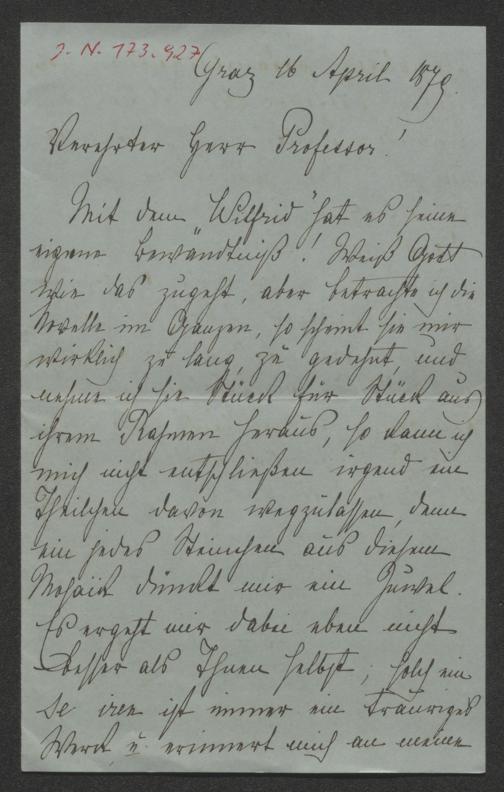 J. N. 173.927
Graz 16 April 1879.
Verehrter Herr Professor!
Mit dem „Wilfrid" hat es seine
eigene Bewändtniß! Weiß Gott
wie das zugeht, aber betrachte ich die
Novelle im Ganzen, so scheint sie mir
wirklich zu lang, zu gedehnt, und
nehme ich sie Stück für Stück aus
ihrem Rahmen heraus, so kann ich
mich nicht entschließen irgend ein
Theilchen davon wegzulassen, denn
ein jedes Steinchen aus diesem
Mosaik dünkt mir ein Juwel.
Es ergeht mir dabei eben nicht
besser als Ihnen selbst; solch ein
ist immer ein trauriges
Werk, u. erinnert mich an meine